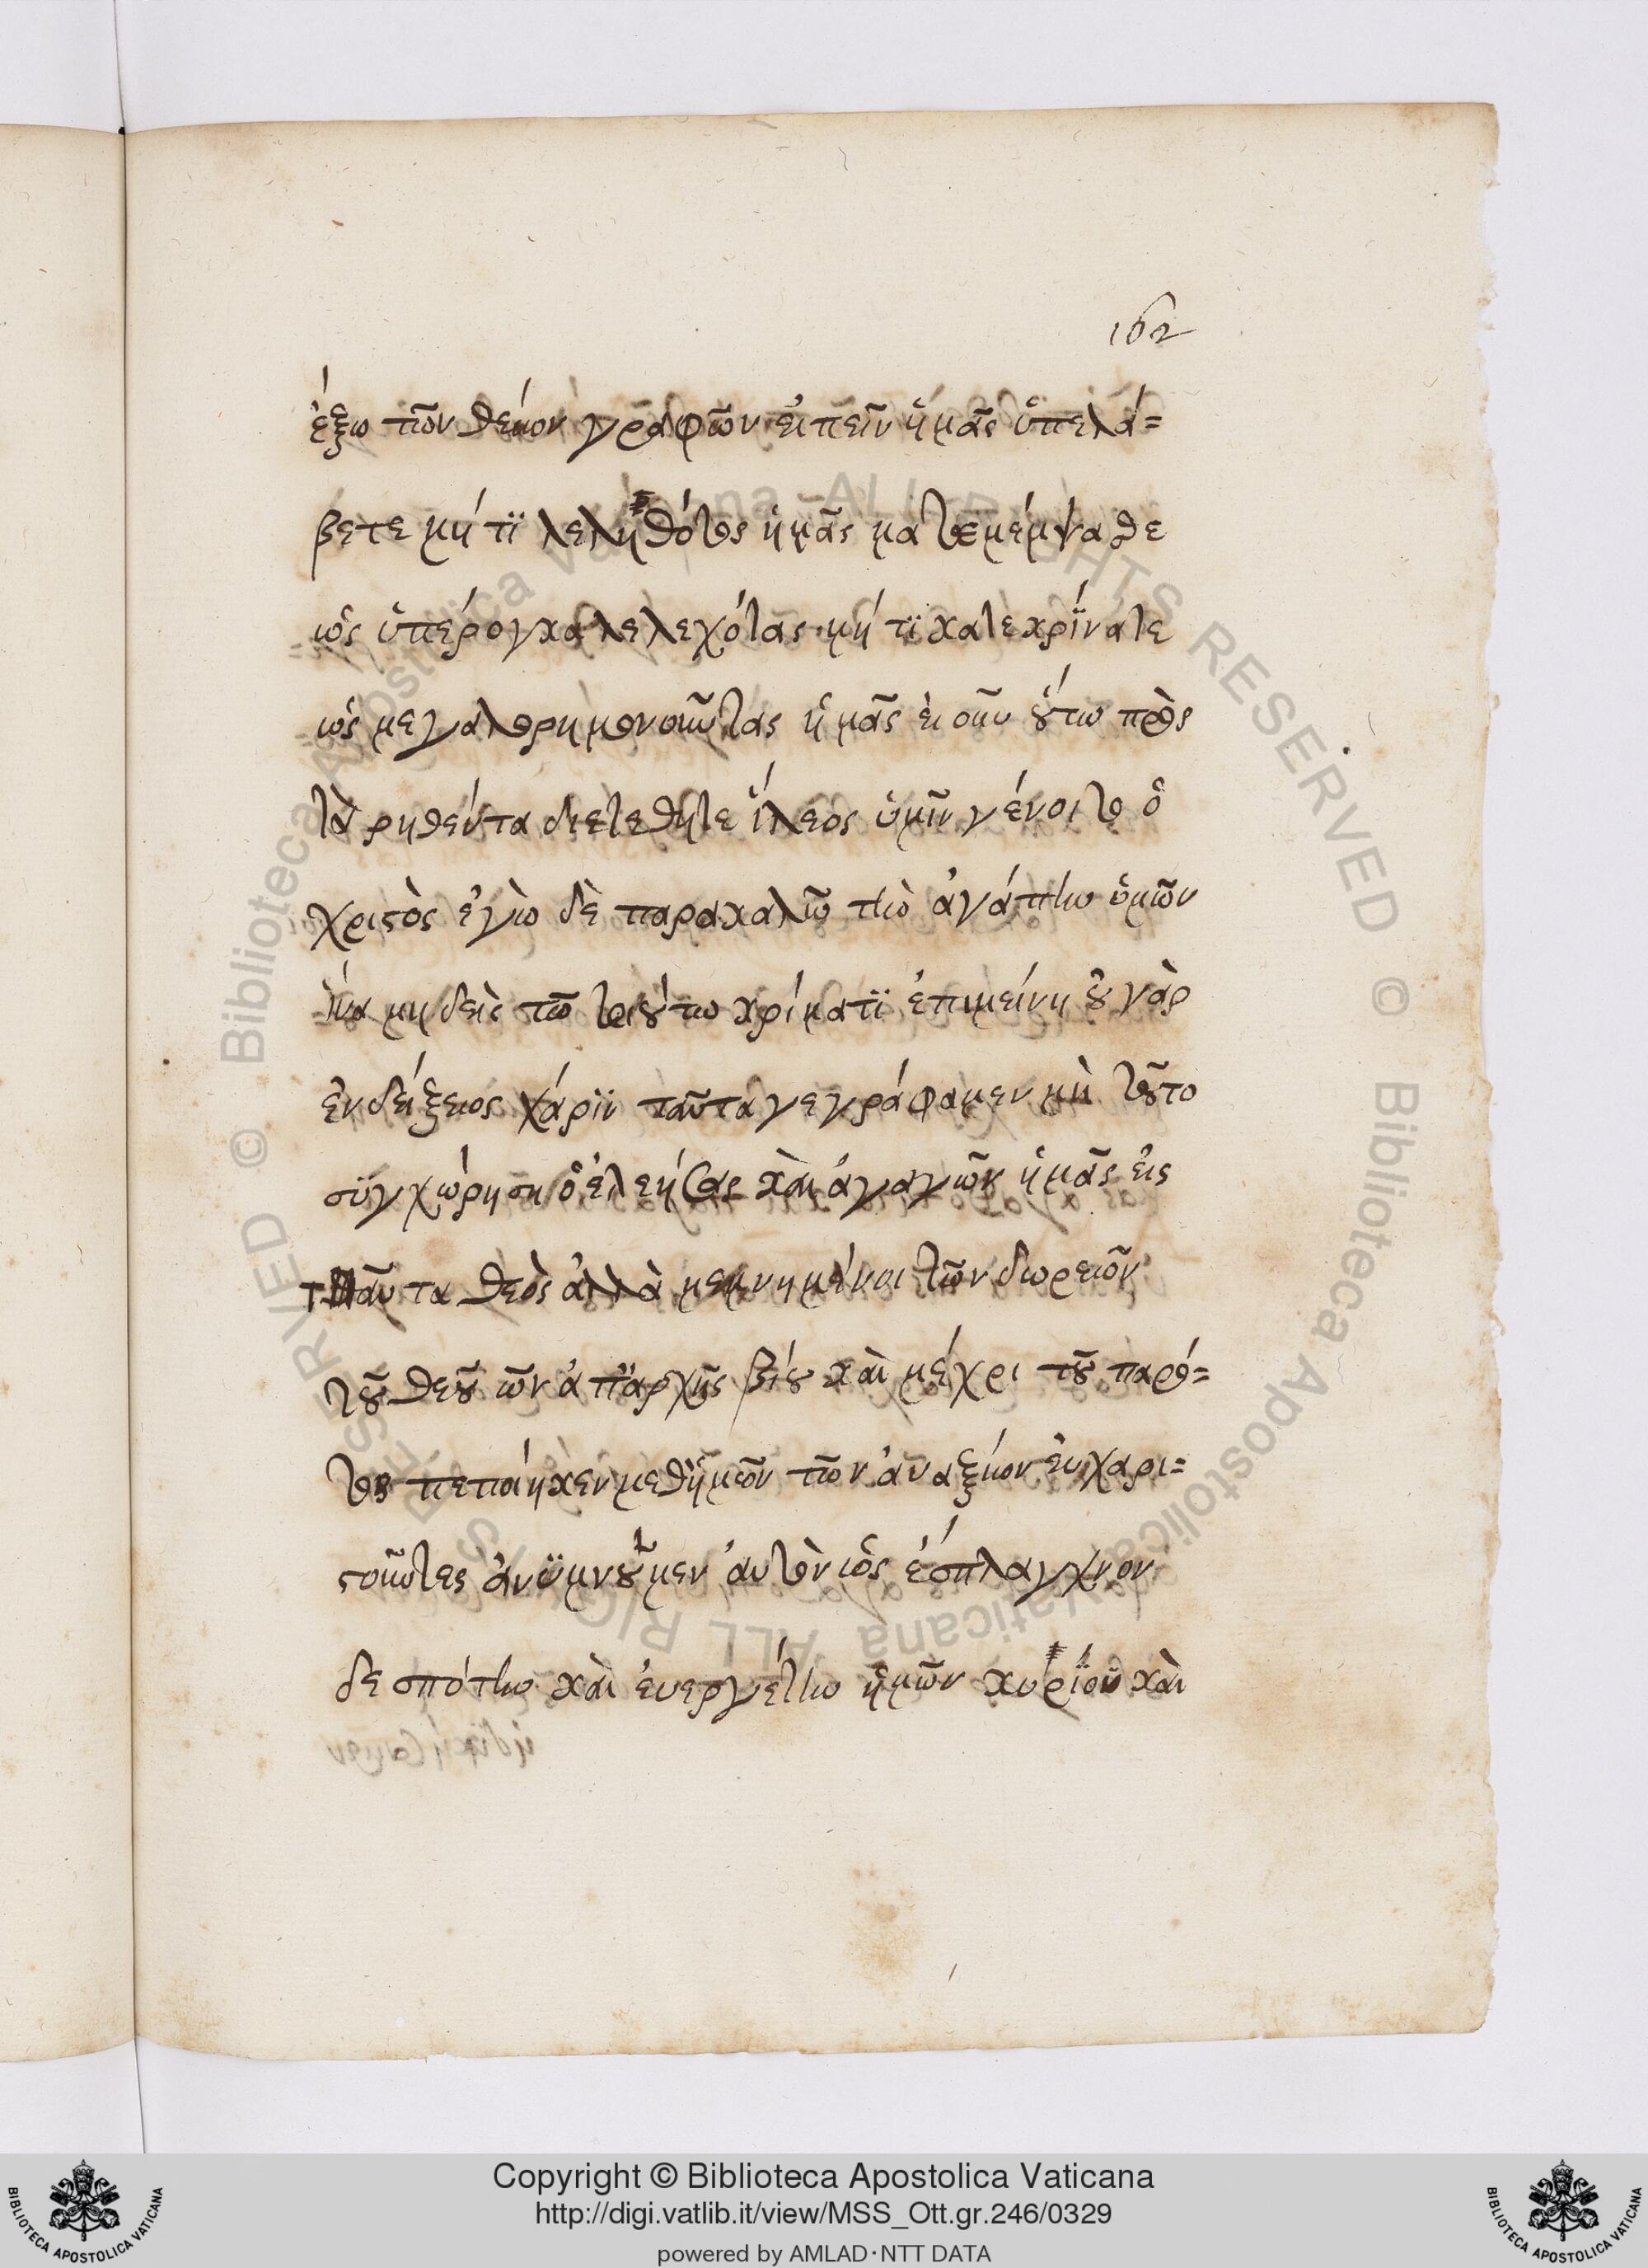 162
ἔξω τῶν θείων γραφῶν εἰπεῖν ἡμᾶς ὑπελά=
βετε μή τϊ λεληθότος ἡμᾶς κατεμέμψαθε
ὡς ὑπέρογκα λελεχότας· μή τϊ κατεκρίνατε
ὡς μεγαλορημονοῦντας ἡμᾶς εἰ οὖν οὕτω πρὸς
τὰ ρηθέντα διετέθητε ἵλεος ὑμῖν γένοιτο ὁ
χριστὸς ἐγὼ δὲ παρακαλῶ τὴν ἀγάπην ὑμῶν
ἵνα μηδεὶς τῶ τοιούτω κρίματϊ ἐπιμείνη οὐ γὰρ
ἐνδείξεως χάρϊν ταῦτα γεγράφαμεν μὴ τοῦτο
σϋγχώρηση ὁ ἐλεήσας καὶ ἀγαγῶν ἡμᾶς εἰς
ταῦτα θεὸς ἀλλὰ μεμνημένοι τῶν δωρεῶν
τοῦ θεοῦ ὧν ἀπ' ἀρχῆς βίου καὶ μέχρι τοῦ παρό=
τος πεποίηκεν μεθ' ἡμῶν τῶν ἀναξίων εὐχαρι=
στοῦντες ἀνϋμνοῦμεν αὐτὸν ὡς ἔσπλαγχνον
δεσπότην καὶ εὐεργέτην ἡμῶν κυρίου καὶ
Copyright © Biblioteca Apostolica Vaticana
http://digi.vatlib.it/view/MSS_Ott.gr.246/0329
powered by AMLAD·NTT DATA
BIBLIOTECA APOSTOLICA VATICANA
BIBLIOTECA APOSTOLICA VATICANA